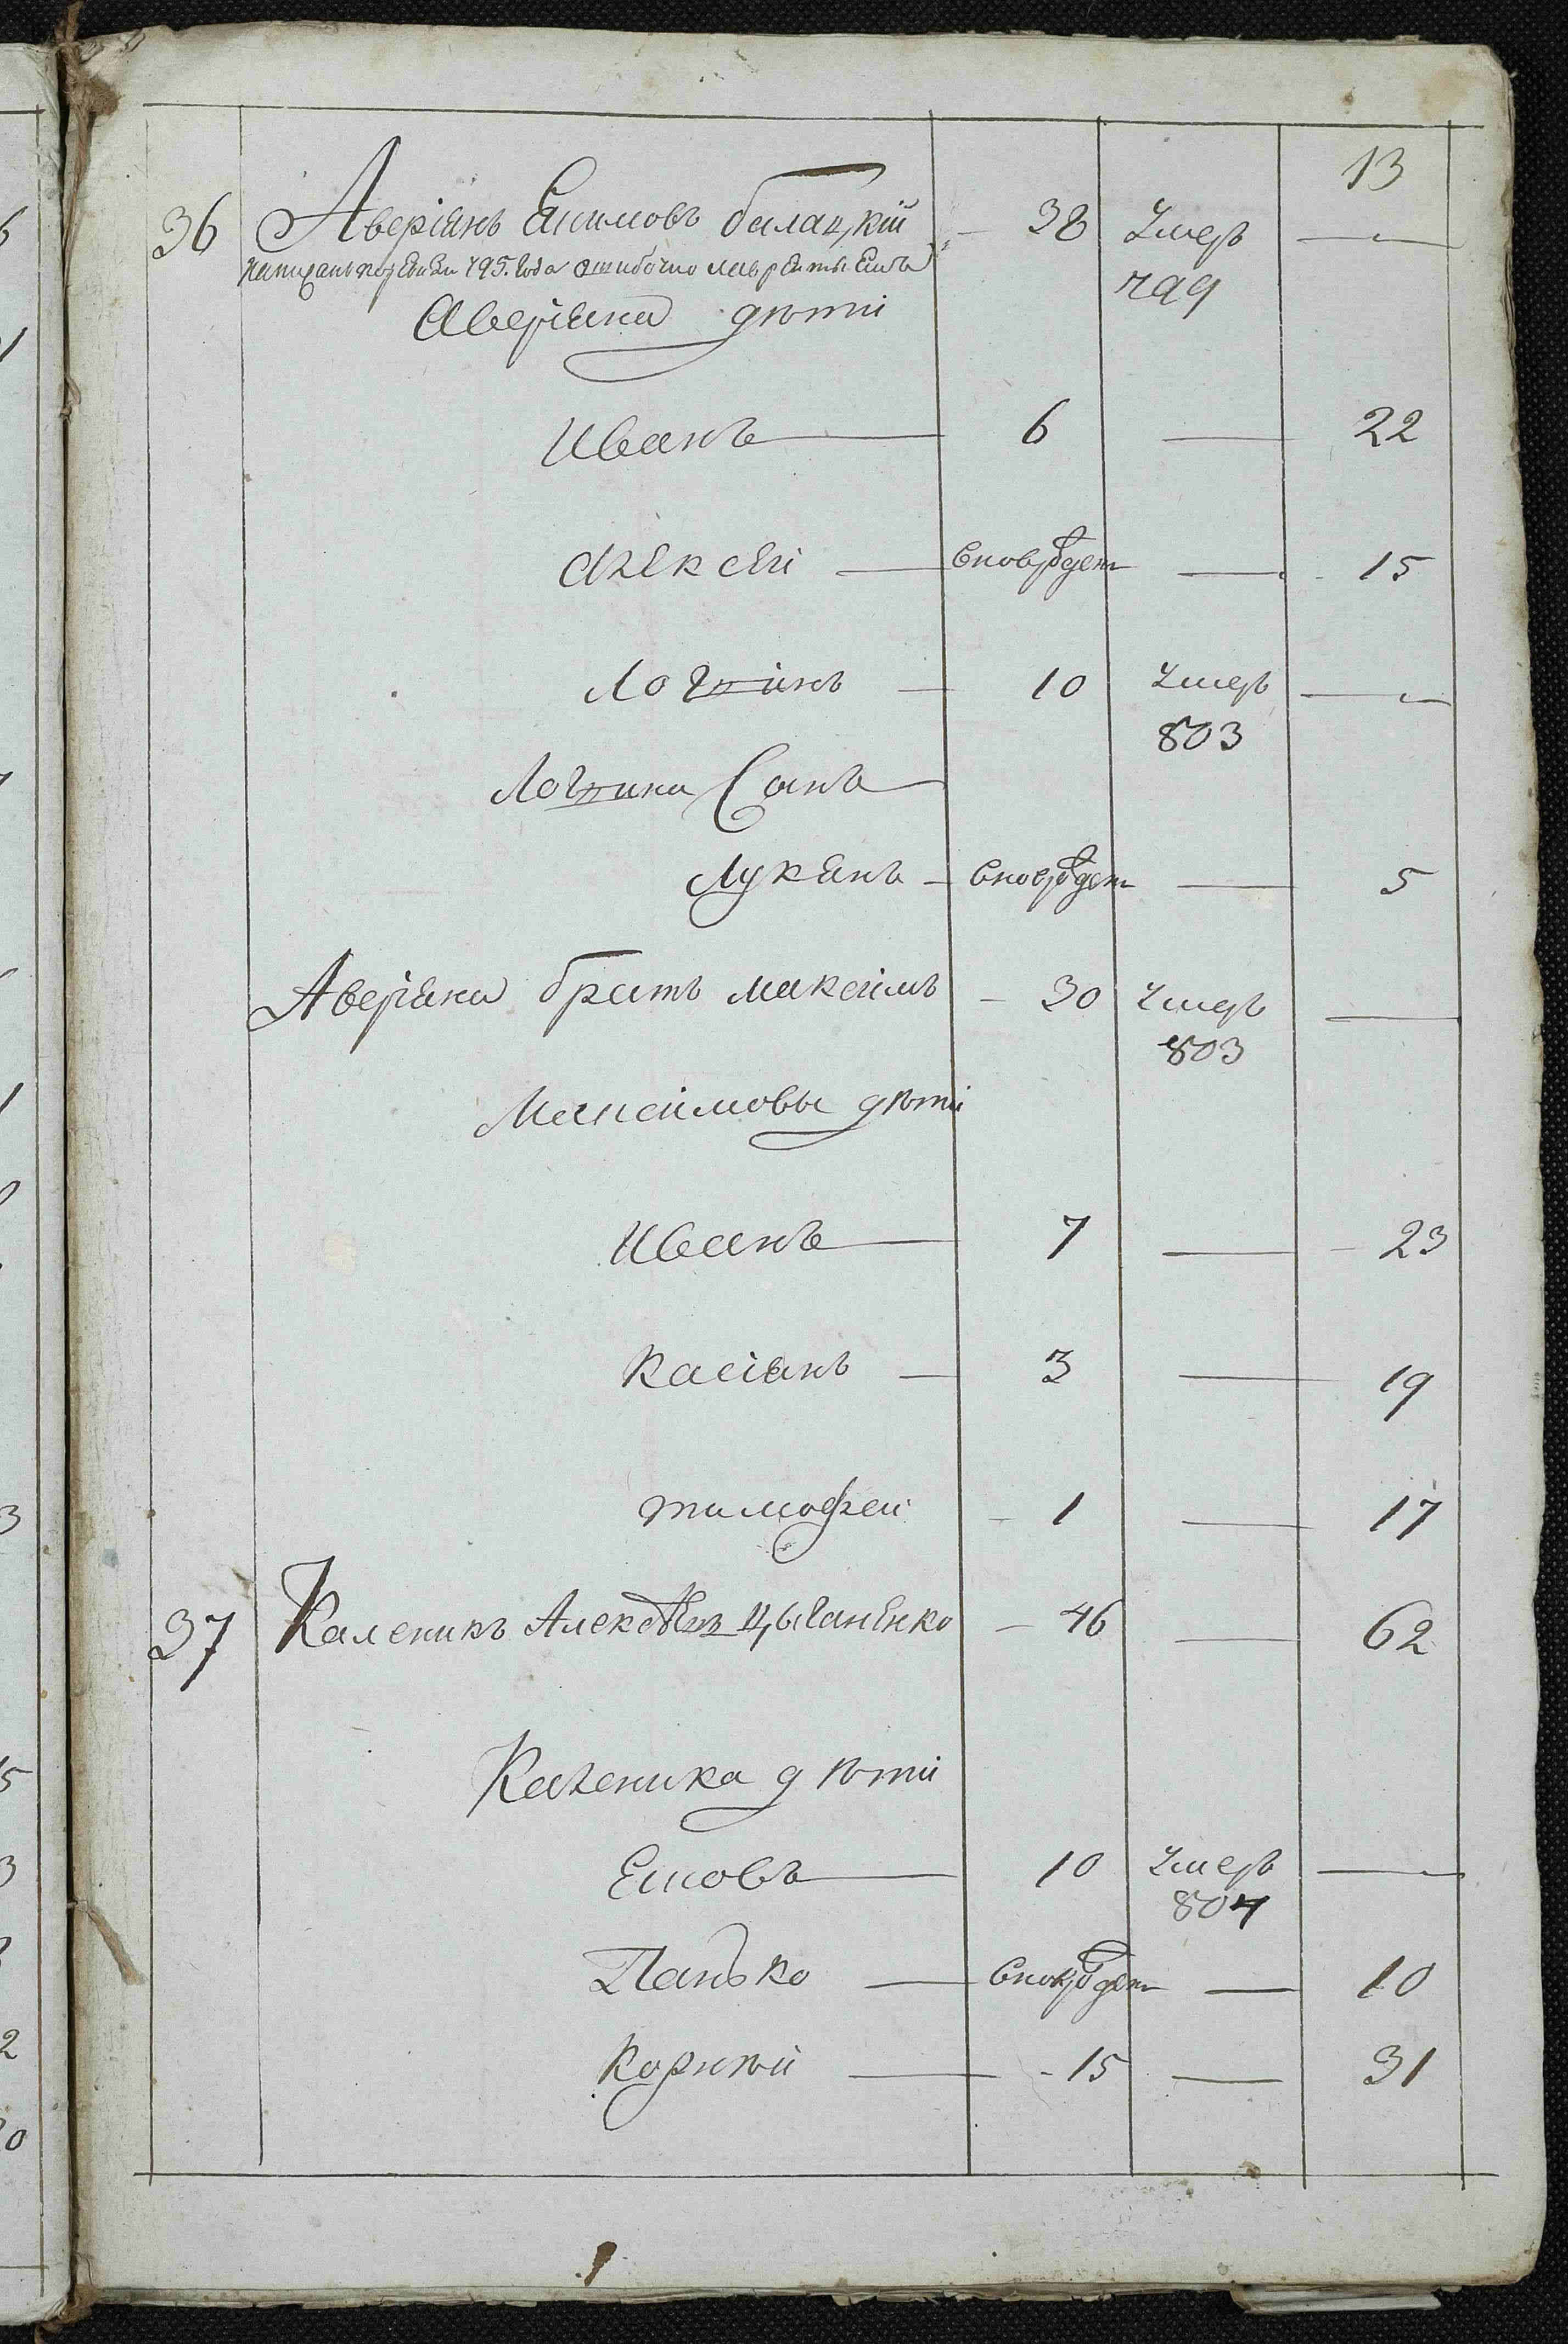 13
36 Аверіянъ Екимовъ балацкій — 38 Умеръ —
написанъ по ревизіи 795. года ошибочно лаврентьемъ 799
Аверіяна дѣти
Иванъ — 6 — 22
Алексей — вновь рожден — 15
Логинъ — 10 Умеръ —
803
Логина Сынъ
Лукянъ — вновь рожден — 5
Аверіяна братъ максимъ — 30 Умеръ —
803
Максимовы дѣти
Иванъ — 7 — 23
Касіянъ — 3 — 19
тимофеи — 1 — 17
37 Каленикъ Алексѣевъ Цыганенко — 46 — 62
Каленика дѣти
Емовъ — 10 Умеръ —
804
Панько — вновь рожден — 10
Корнѣй — 15 — 31